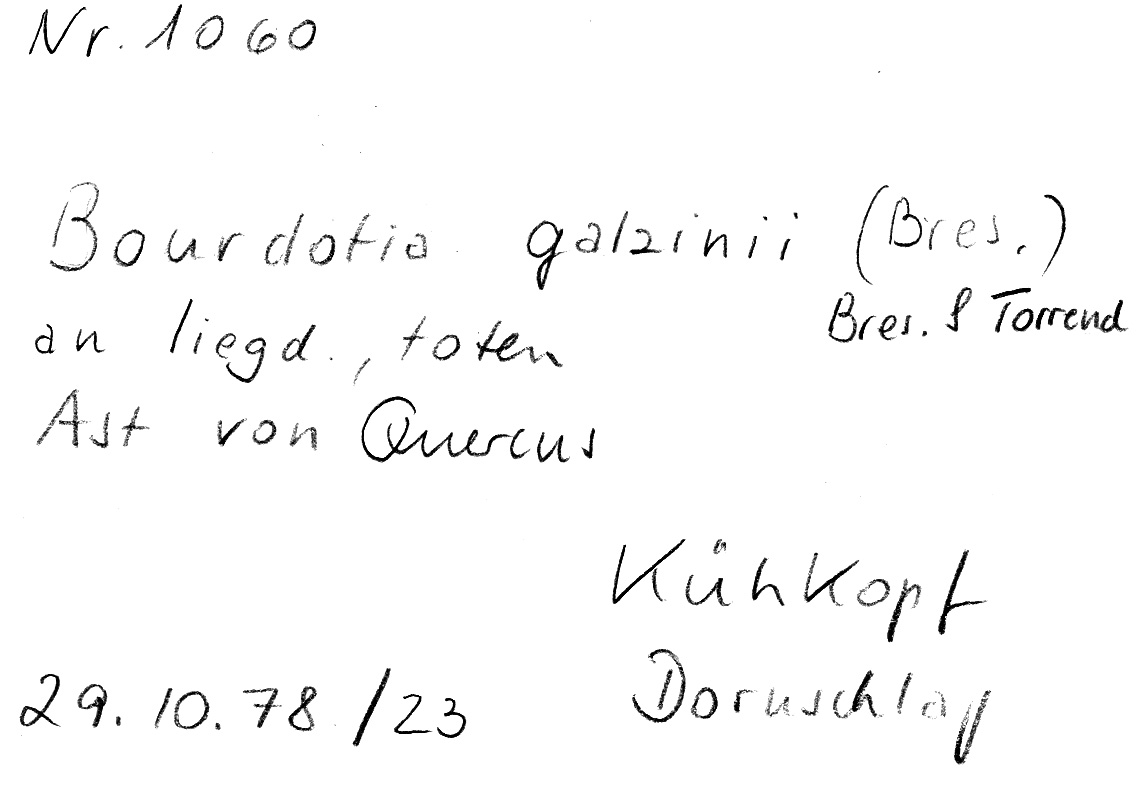 Nr. 1060
Bourdotia galzinii (Bres.)
Bres. & Torrend
an liegd., toten
Ast von Quercus
Kühkopf
Dornschlag
29.10.78/23